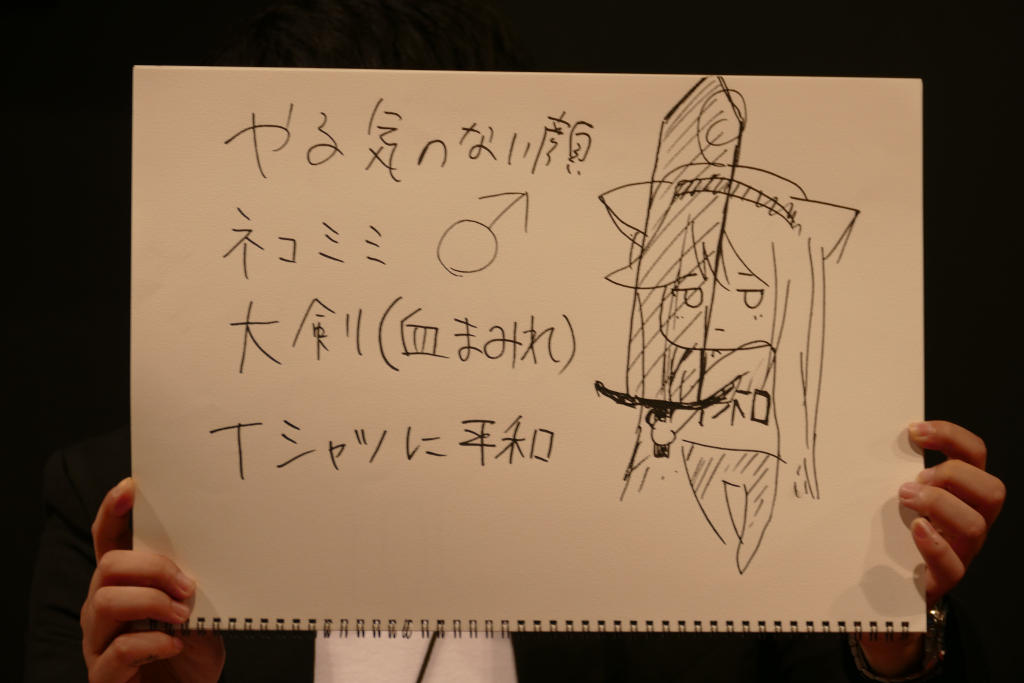 やる気のない顔
ネコミミ ♂
大剣(血まみれ)
Tシャツに平和
和